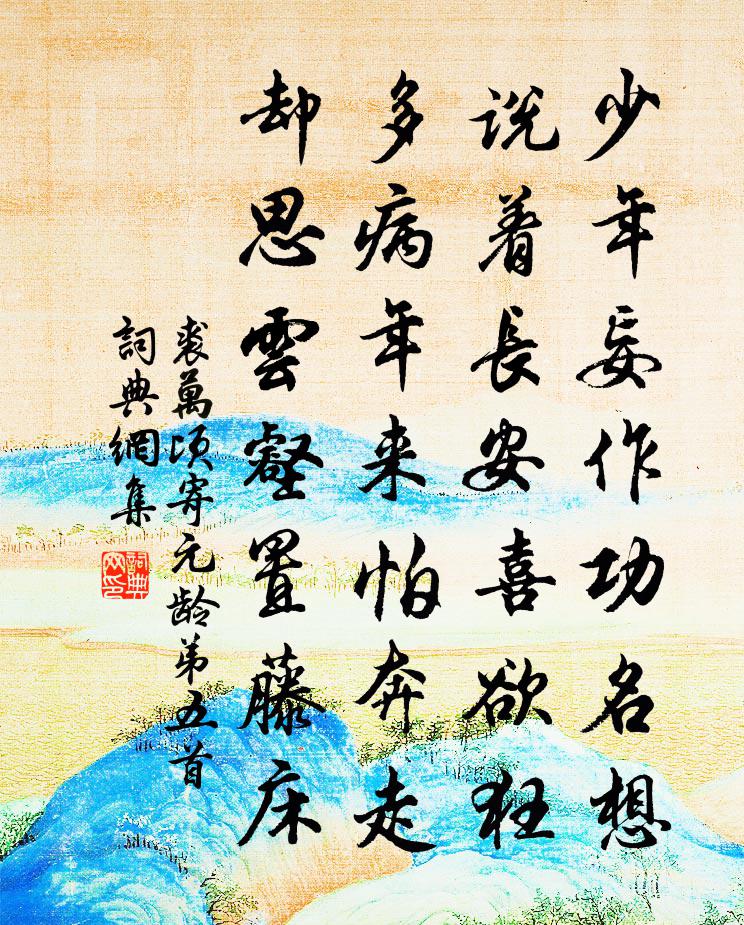 少年妄作功名想
说着長安喜欲狂
多病年来怕奔走
却思雲壑置藤床
裘萬頃寄元龄弟五首
詞典網集
詞典
网印